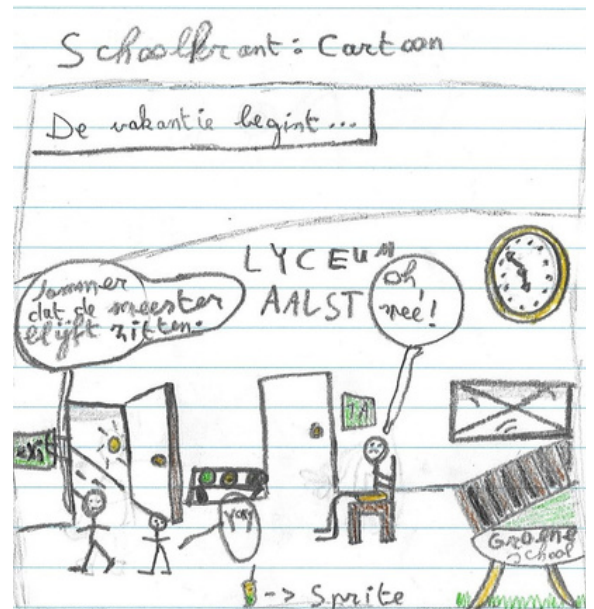 Schoolkrant: Cartoon
De vakantie begint...
LYCEUM
AALST
Jammer
dat de meester
blijft zitten.
Oh
nee!
exit
1A
Groene
School
-> Sprite